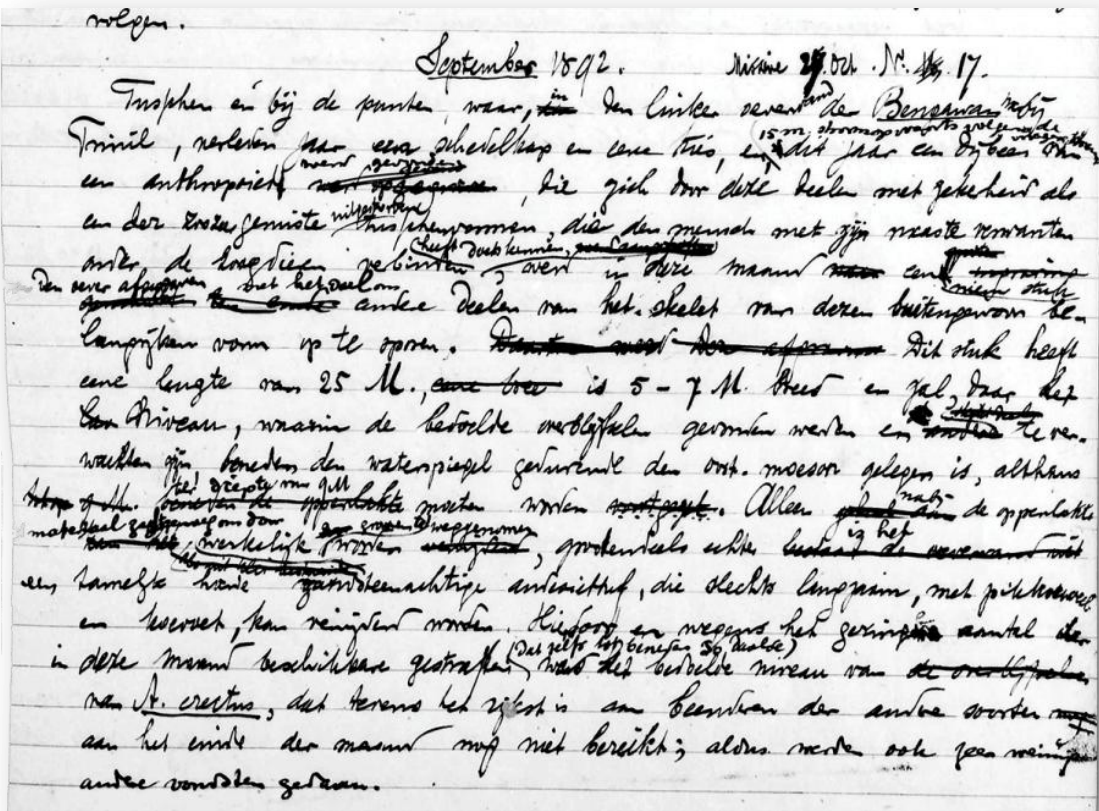 volgen.
September 1892. Missive 27. Oct. No. 17.
Tusschen en bij de punten, waar, in den linker oeverwand der Bengawan nabij
Trinil, verleden jaar eene schedelkap en eene kies, en, 15 m. stroomopwaarts volgens de, dit jaar een dijbeen van
een anthropoïde werd gevonden, die zich door deze deelen met zekerheid als
een der zoozeer gemiste uitgestorvene tusschenvormen, die den mensch met zijn naaste verwanten
onder de zoogdieren verbinden, heeft doen kennen, werd in deze maand een nieuw stuk
den oever afgegraven met het doel om andere deelen van het skelet van dezen buitengewoon be-
langrijken vorm op te sporen. Dit stuk heeft
eene lengte van 25 M., is 5 - 7 M. breed en zal, daar het
niveau, waarin de bedoelde overblijfselen gevonden werden en te ver-
wachten zijn, beneden den waterspiegel gedurende den oost-moesson gelegen is, althans
ter diepte van 9 M moeten worden. Alleen nabij de oppervlakte
materiaal weggenomen werkelijk worden, grootendeels echter is het
een tamelijk harde zandsteenachtige andesiettuf, die slechts langzaam, met pikhouweel
en koevoet, kan verwijderd worden. Hierdoor en wegens het geringe aantal der
in deze maand beschikbare gestraften (dat zelfs tot beneden 30 daalde) was het bedoelde niveau van
van A. erectus, dat tevens het rijkst is aan beenderen der andere soorten
aan het einde der maand nog niet bereikt; aldus werden ook geen
andere vondsten gedaan.